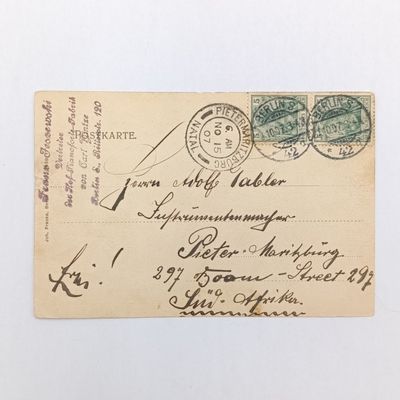 POSTKARTE.
Vertreter
der Hof-Pianoforte-Fabrik
von Carl
Berlin S., Ritterstr. 120
PIETERMARITZBURG
NATAL
6 AM
NO 15
07
BERLIN S
42
BERLIN S
42
Herrn Adolf
Instrumentenmacher
Pieter-Maritzburg
297 Boom-Street 297
Süd-Afrika.